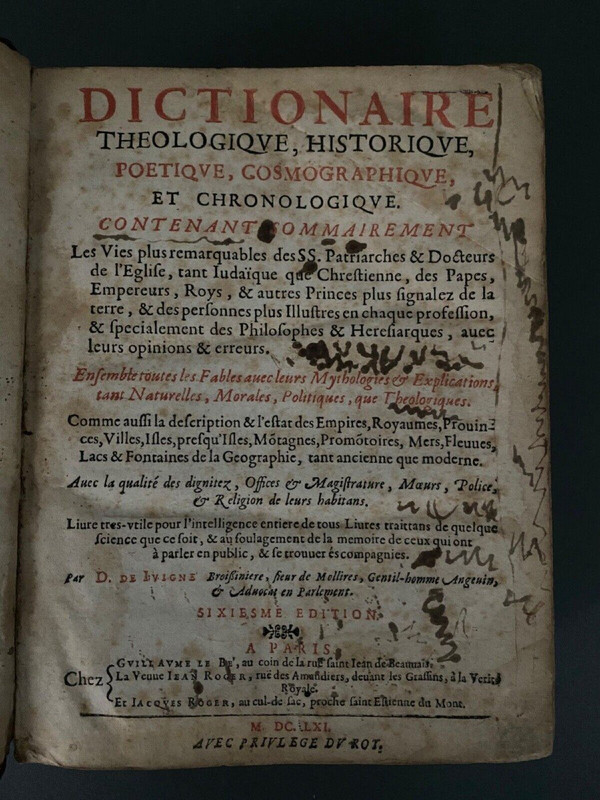 DICTIONAIRE
THEOLOGIQVE, HISTORIQVE,
POETIQVE, COSMOGRAPHIQVE,
ET CHRONOLOGIQVE.
CONTENANT SOMMAIREMENT
Les Vies plus remarquables des SS. Patriarches & Docteurs
de l'Eglise, tant Iudaïque que Chrestienne, des Papes,
Empereurs, Roys, & autres Princes plus signalez de la
terre, & des personnes plus Illustres en chaque profession,
& specialement des Philosophes & Heresiarques, auec
leurs opinions & erreurs.
Ensemble toutes les Fables auec leurs Mythologies & Explications,
tant Naturelles, Morales, Politiques, que Theologiques.
Comme aussi la description & l'estat des Empires, Royaumes, Prouin-
ces, Villes, Isles, presqu'Isles, Mõtagnes, Promõtoires, Mers, Fleuues,
Lacs & Fontaines de la Geographie, tant ancienne que moderne.
Auec la qualité des dignitez, Offices & Magistrature, Mœurs, Police,
& Religion de leurs habitans.
Liure tres-vtile pour l'intelligence entiere de tous Liures traittans de quelque
science que ce soit, & au soulagement de la memoire de ceux qui ont
à parler en public, & se trouuer és compagnies.
Par D. DE IVIGNE Broissiniere, sieur de Mollires, Gentil-homme Angeuin,
& Aduocat en Parlement.
SIXIESME EDITION.
A PARIS,
Chez
GVILLAVME LE BE', au coin de la ruë saint Iean de Beauuais.
La Veuue IEAN ROGER, ruë des Amandiers, deuant les Grassins, à la Verité
Royale.
Et IACQVES ROGER, au cul-de sac, proche saint Estienne du Mont.
M. DC. LXI.
AVEC PRIVLEGE DV ROY.